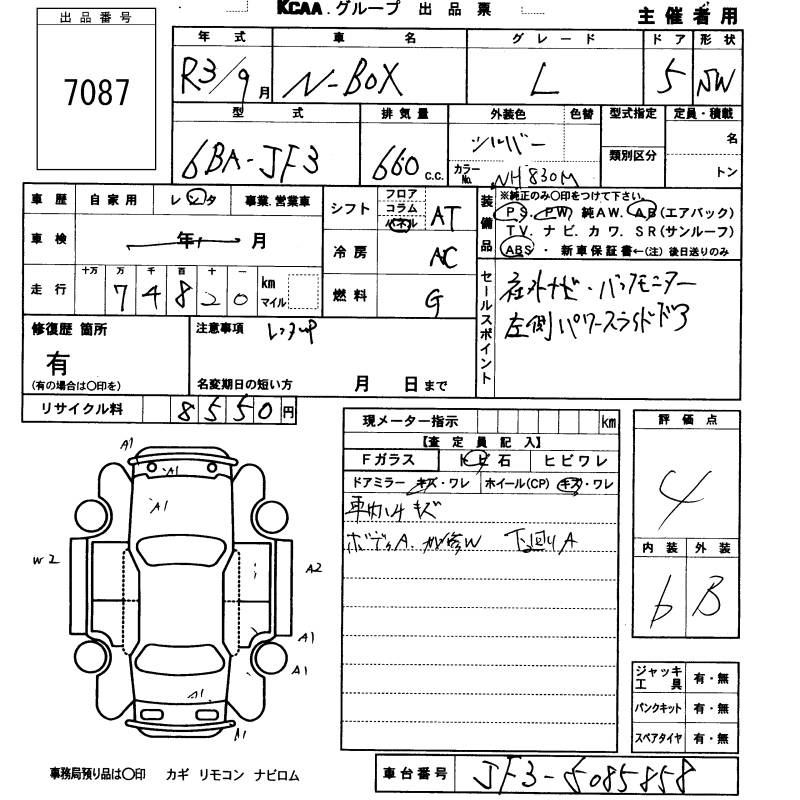 KCAA.グループ 出品票
主催者用
出品番号
7087
年式 車名 グレード ドア 形状
R3/9月 N-BOX L 5 SW
型式 排気量 外装色 色替 型式指定 定員・積載
6BA-JF3 660c.c. シルバー 名
カラーNo. NH830M 類別区分 トン
車歴 自家用 レンタ 事業.営業車
車検 年 月
十万 万 千 百 十 一
走行 7 4 8 2 0 km マイル
シフト フロア コラム パネル AT
冷房 AC
燃料 G
装備品 ※純正のみ〇印をつけて下さい。
PS. PW. 純AW. AB(エアバック)
TV. ナビ. カワ. SR(サンルーフ)
ABS・ 新車保証書←(注) 後日送りのみ
セールスポイント
社外ナビ・バックモニター
左側パワースライドドア
修復歴 箇所
有
(有の場合は〇印を)
注意事項 レンタUP
名変期日の短い方 月 日まで
リサイクル料 8550円
現メーター指示 km
【査定員記入】
Fガラス トビ石 ヒビワレ
ドアミラー キズ・ワレ ホイール(CP) キズ・ワレ
車内ハゲキズ
ボディA. 補修W 下廻りA
評価点
4
内装 外装
b B
A1
A1
A1
W2
A2
A1
A1
A1
A1
ジャッキ工具 有・無
パンクキット 有・無
スペアタイヤ 有・無
事務局預り品は〇印 カギ リモコン ナビロム
車台番号 JF3-5085858